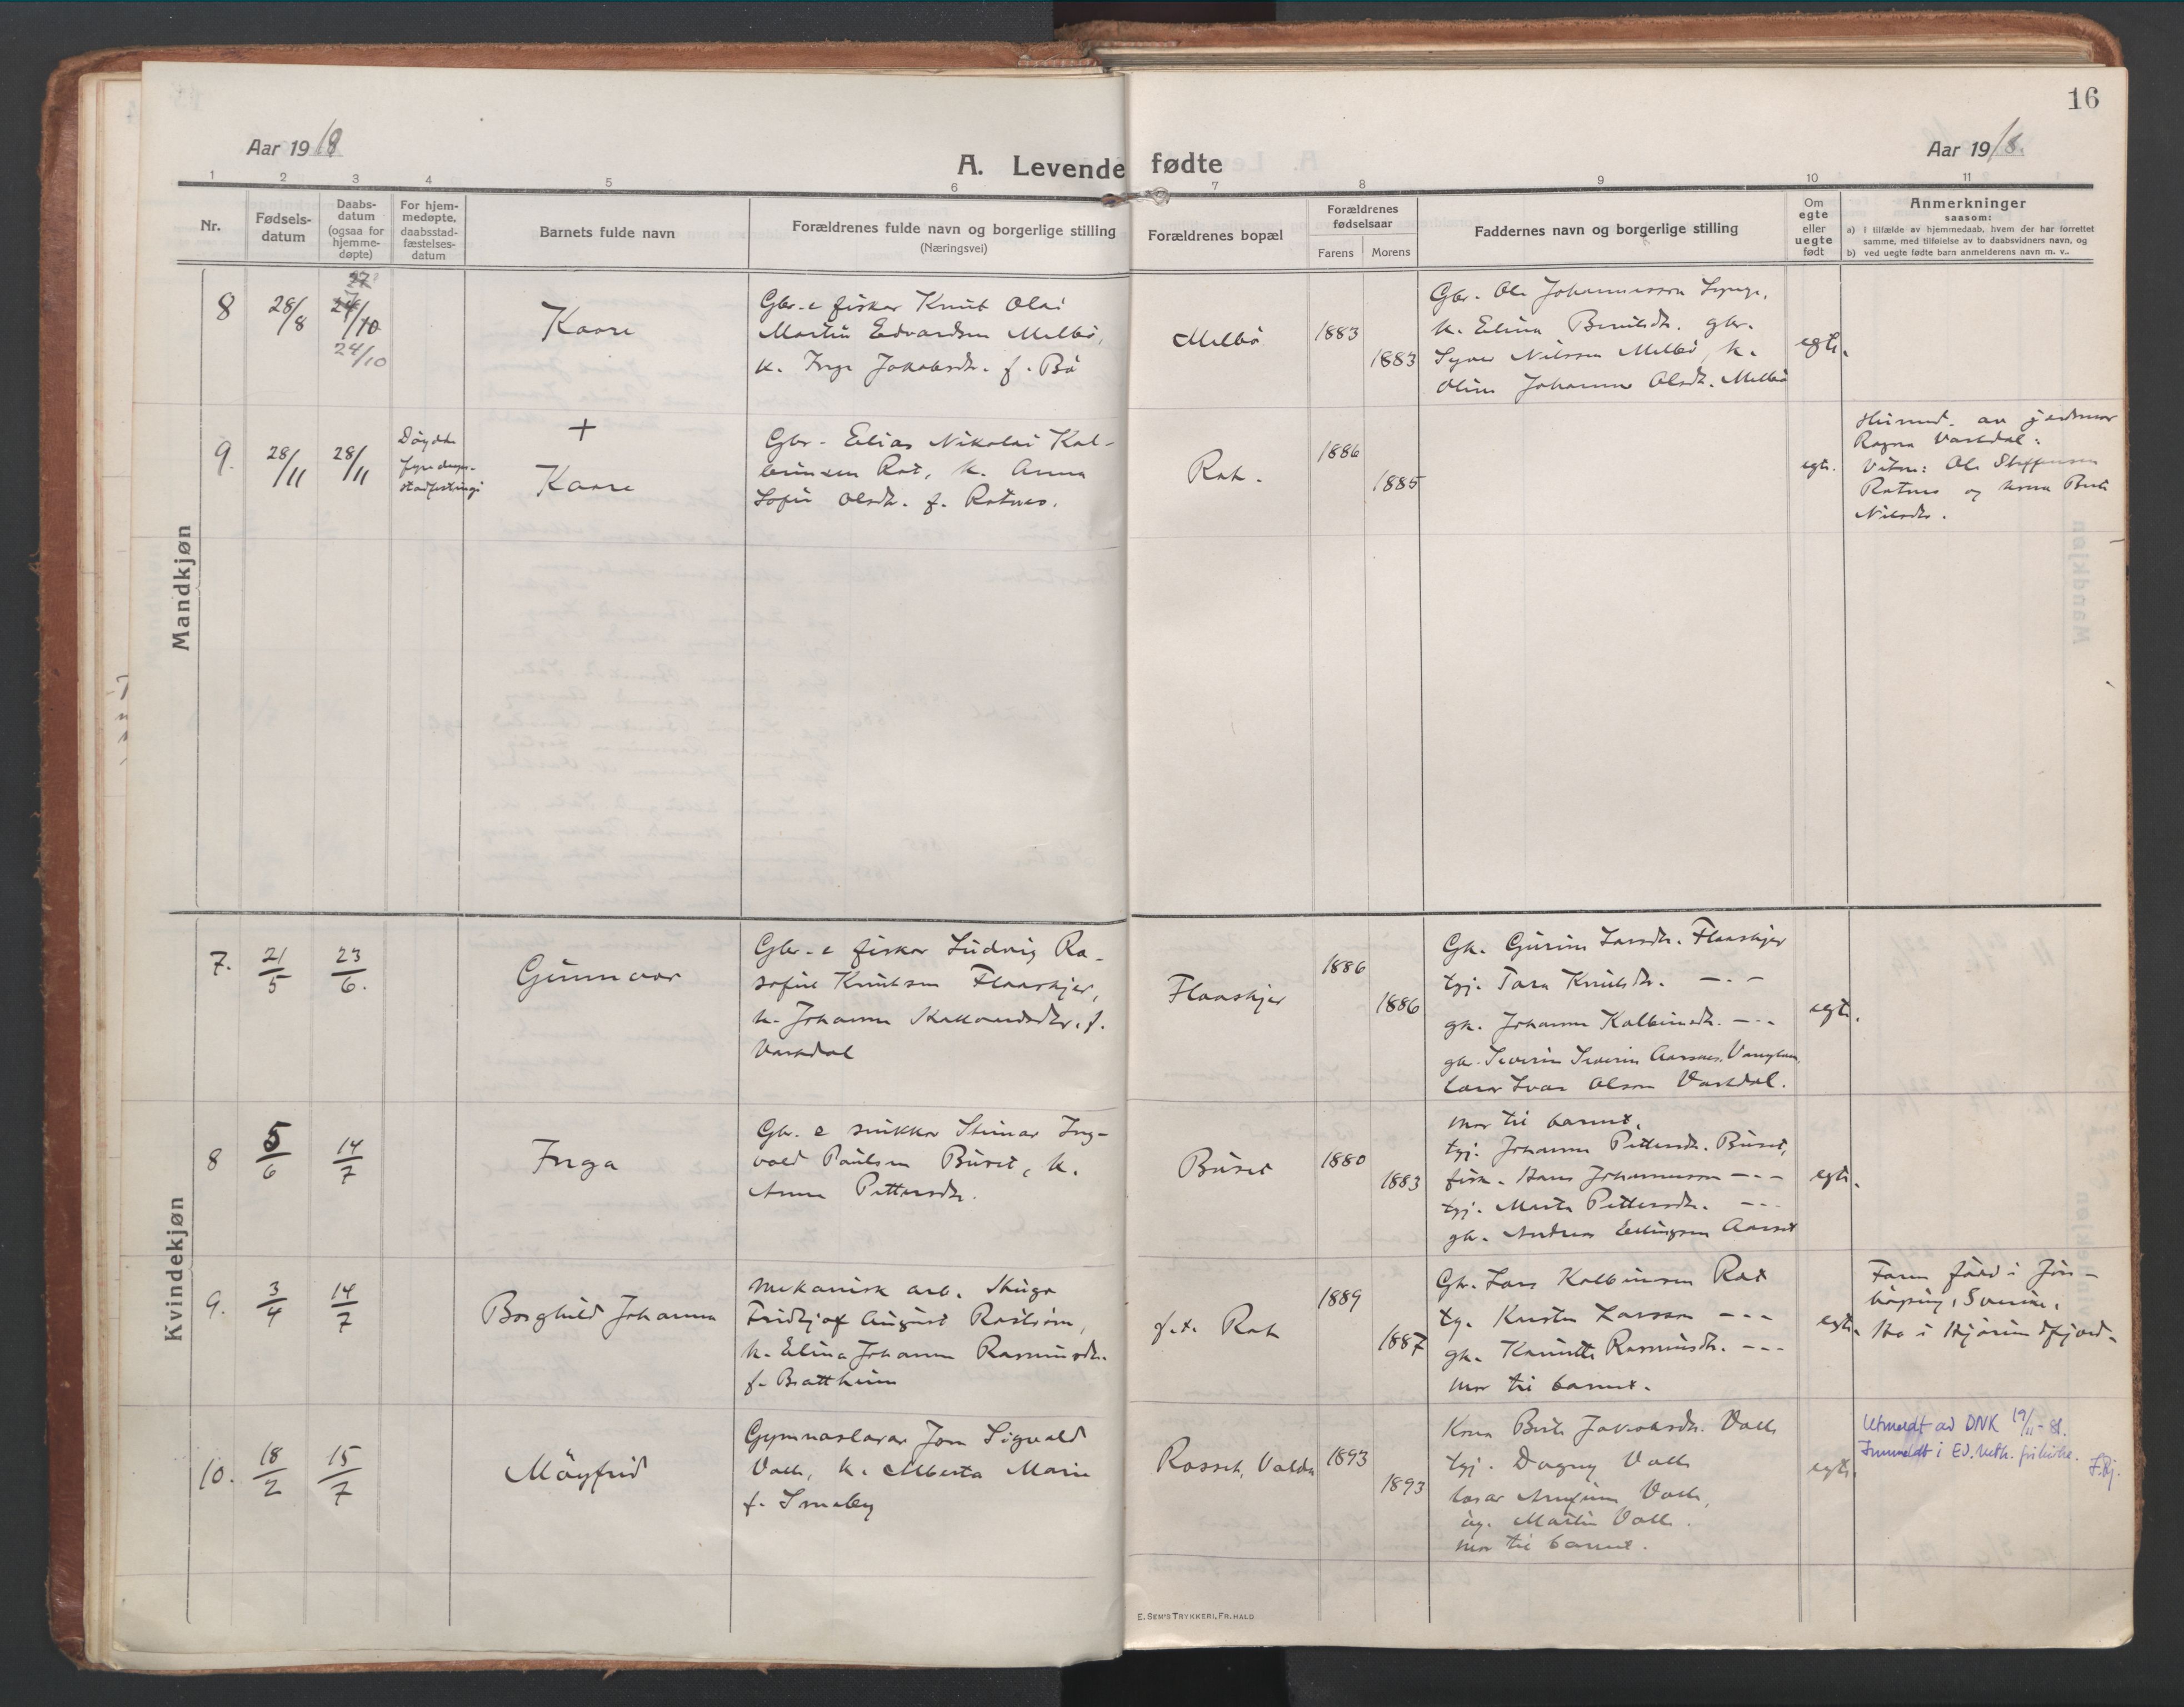 16
Aar 1918
A. Levende fødte
Aar 1918.
1 2 3 4 5 6 7 8 9 10 11
Nr.
Fødsels-
datum
Daabs-
datum
(ogsaa for
hjemme-
døpte)
For hjem-
medøpte,
daabsstad-
fæstelses-
datum
Barnets fulde navn
Forældrenes fulde navn og borgerlige stilling
(Næringsvei)
Forældrenes bopæl
Forældrenes
fødselsaar
Farens Morens
Faddernes navn og borgerlige stilling
Om
egte
eller
uegte
født
Anmerkninger
saasom:
a) i tilfælde av hjemmedaab, hvem der har forrettet
samme, med tilføielse av to daabsvidners navn, og
b) ved uegte fødte barn anmelderens navn m. v..
Mandkjøn
8
28/8
27
24/10
24/10
Kaare
Gbr. e fisker Knut Olai
Martin Edvardsen Melbö,
k. Inga Jakobsdt. f. Bö
Melbö
1883
1883
Gbr. Ole Johannesson
k. Elina gbr.
Nilssen Melbö, k.
Johanne Olsdt. Melbö
egte.
9.
28/11
28/11
Döydde
fyre daaps-
stadfestingi
+
Kaare
Gbr. Elias Nikolai Kol-
beinsen Rot, k. Anna
Sofie Olsdt. f. Rotnes.
1886
1885
egte.
Heimed. av jordmor
Ragna Vartdal.
Vitne: Ole Steffensen
Rotnes og kona Berte
Nilsdt.
Kvindekjøn
7.
21/5
23/6.
Gunnvor
Gbr. e fisker Ludvig Ra-
Knutsen Flaaskjer,
k. Johanne f.
Vartdal
Flaaskjer
1886
1886
Gk. Gurine Larsdt. Flaaskjer
tyj. Tara Knutsdt. — . —
gk. Johanne Kolbeinsdt. — . -
gbr. Severin Severin Aarsnes,
lærar Ivar Olson Vartdal.
egte.
8
5/6
14/7
Inga
Gbr. e snikkar Steinar Ing-
vald Paulsen Buset, k.
Anna Pettersdt.
Buset
1880
1883
Mor til barnet,
tyj. Johanne Pettersdt. Buset,
fisk. Hans Johannesson — . —
tyj. Marta Pettersdt. — . -
gk. Andreas Ellingsen Aarset
egte.
9.
3/4
14/7
Borghild Johanna
Mekanisk arb. Hugo
Fridtjof August
k. Elina Johanne Rasmusdt.
f. Brattheim
f. t.
1889
1887
Gbr. Lars Kolbeinsen Rot
Larsson - - -
gk. Rasmusdt. - - -
Mor til barnet.
egte.
Faren född i Jön-
köping, Sverike.
Ho i Hjörundfjord.
10.
18/2
15/7
Möyfrid
Gymnaslærar Jon Sigvald
Valle, k. Alberta Marie
f. Smeby
Rosset, Volda
1893
1893
Kona Berte Jakobsdt. Valle
tyj. Dagny Valle
lærar Valle,
Martin Valle.
Mor til barnet.
egte.
Utmeldt av DNK 19/11-81.
Innmeldt i Ev. luth. frikirke.
E. SEM'S TRYKKERI, FR. HALD